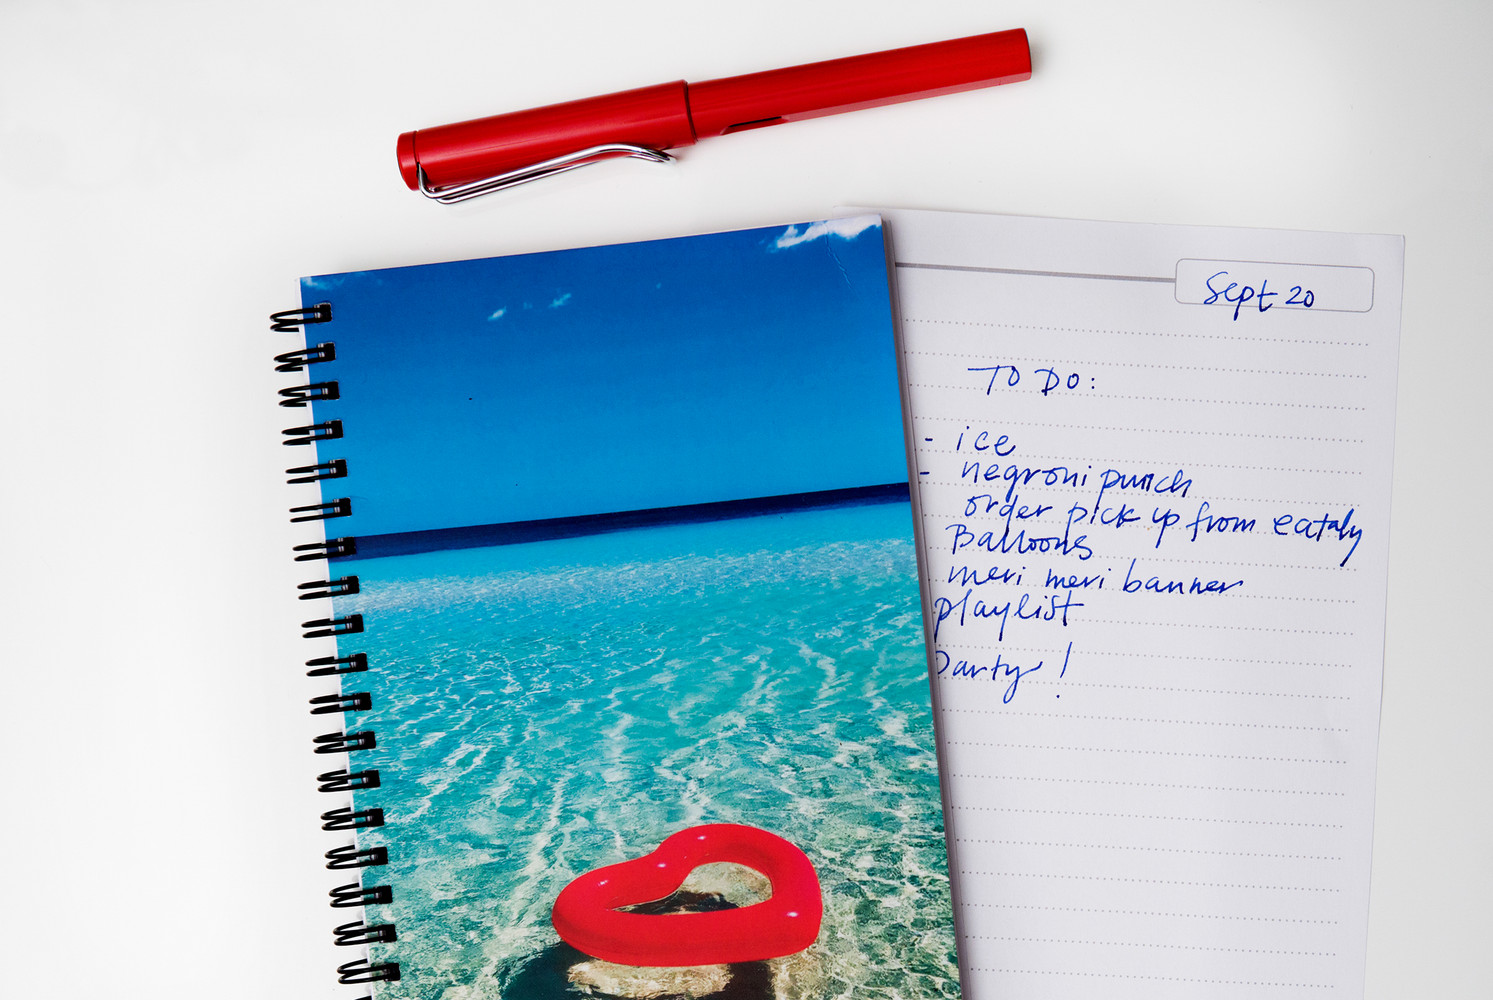 Sept 20
TO DO:
- ice
- negroni punch
order pick up from eataly
Balloons
meri meri banner
playlist
Party!